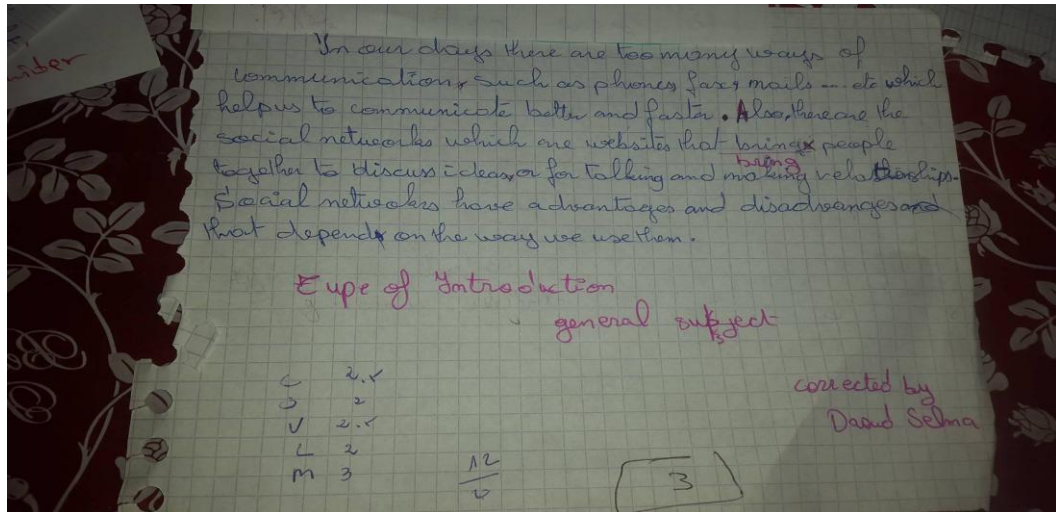 In our days there are too many ways of
communication, such as phones, fax, mails ... etc which
help us to communicate better and faster. Also, there are the
social networks which are websites that brings people
bring
together to discuss ideas, or for talking and making relationships.
Social networks have advantages and disadvanges and
that depends on the way we use them.
Type of Introduction
general subject
C 2.5
O 2
V 2.5
L 2
M 3
12
corrected by
Daoud Selma
3